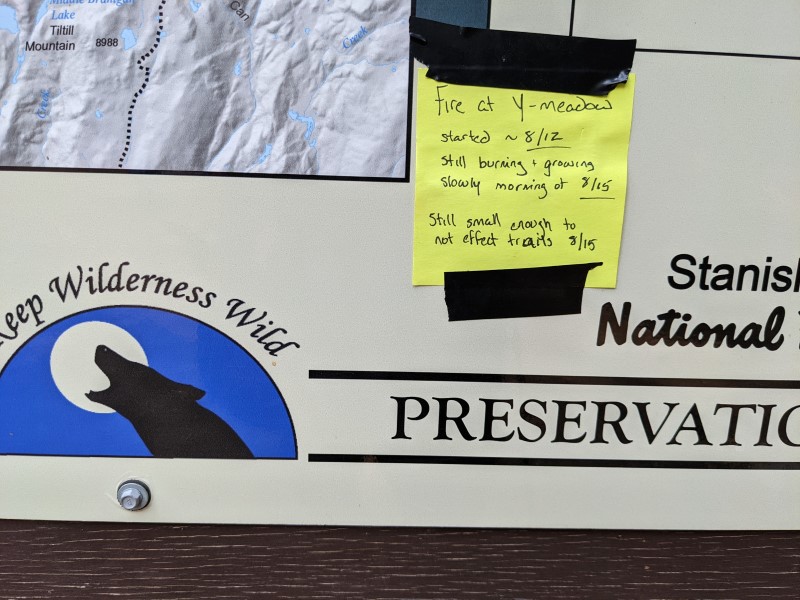 Lake
Tiltill
Mountain 8988
Creek
Creek
Fire at Y-meadow
started ~ 8/12
Still burning + growing
slowly morning of 8/15
Still small enough to
not effect trails 8/15
Keep Wilderness Wild
Stanisl
National
PRESERVATIO